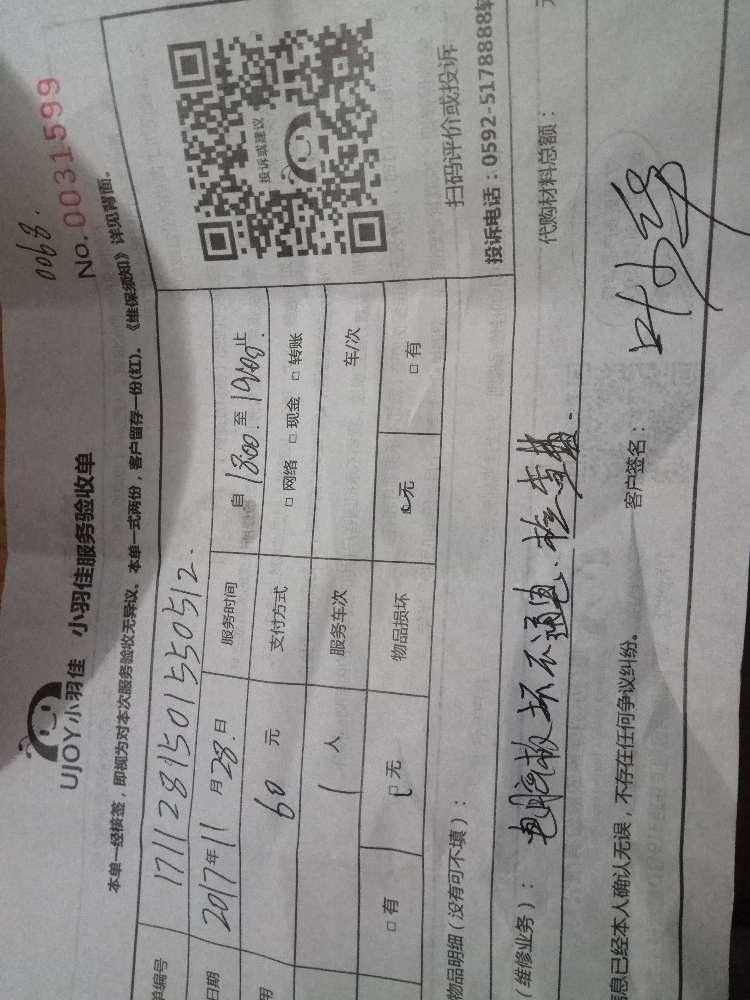 0068.
No.0031599
UJOY小羽佳 小羽佳服务验收单
本单一经核签,即视为对本次服务验收无异议。本单一式两份,客户留存一份(红)。《维保须知》详见背面。
单编号 1711281501550512.
日期 2017年11月28.日 服务时间 自1800.至1900.止
用 60元 支付方式 □网络 □现金 □转账
1人 服务车次 车/次
□有 □无 物品损坏 □无 □有
投诉或建议
扫码评价或投诉
投诉电话:0592-5178888转
物品明细(没有可不填):
代购材料总额: 元
(维修业务): 电脑板坏不通电.检查费.
息已经本人确认无误,不存在任何争议纠纷。 客户签名: